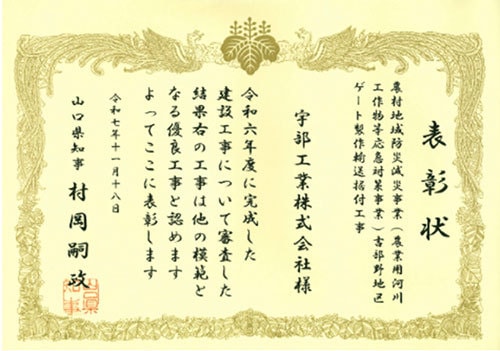 表彰状
農村地域防災減災事業（農業用河川
工作物等応急対策事業）吉部野地区
ゲート製作輸送据付工事
宇部工業株式会社様
令和六年度に完成した
建設工事について審査した
結果右の工事は他の模範と
なる優良工事と認めます
よってここに表彰します
令和七年十一月十八日
山口県知事 村岡嗣政
山口県知事